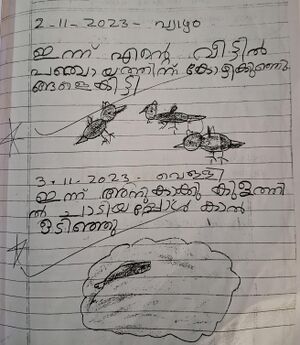 2-11-2023- വ്യാഴം
ഇന്ന് എന്റെ വീട്ടിൽ
പഞ്ചായത്തിന്ന് കോഴിക്കുഞ്ഞു
ങ്ങളെകിട്ടി
3-11-2023- വെള്ളി
ഇന്ന് അനുകാക്കു കുളത്തി
ൽ ചാടിയപ്പോൾ കാൽ
ഒടിഞ്ഞു